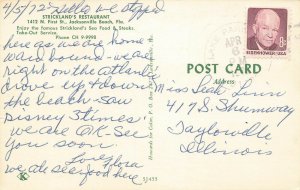 4/5/72 - Hello we stopped
STRICKLAND'S RESTAURANT
1412 N. First St., Jacksonville Beach, Fla.
Enjoy the famous Strickland's Sea Food & Steaks.
Take-Out Service.
Phone CH 9-9998
here as we are home
ward bound - we are
right on the atlantic
drove up down
the beach - saw
Disney 3 times!
we are O.K. - See
you soon.
Love Flora
we ate sea food here
EISENHOWER·USA
8c
POST CARD
Address
Miss Leah Linn
417 S. Shumway
Taylorville
Illinois
K
51455